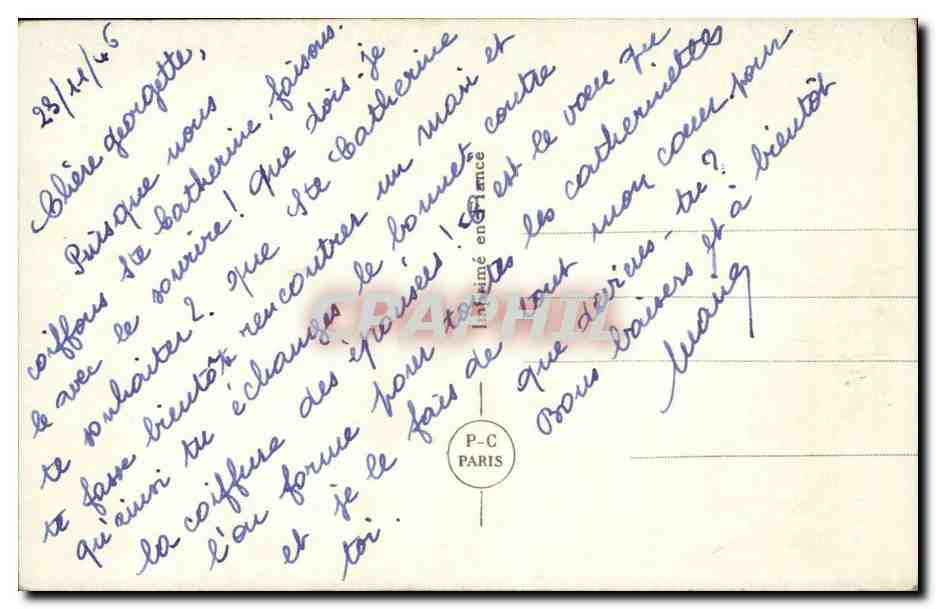 23/11/46
Chère georgette,
Puisque nous
coiffons Ste Catherine, faisons.
le avec le sourire! que dois-je
te souhaiter? que Ste Catherine
te fasse bientôt rencontrer un mari et
qu'ainsi tu échanges le bonnet contre
la coiffure des épousées! c'est le vœu que
l'on forme pour toutes les catherinettes
et je le fais de tout mon cœur pour
toi. que deviens-tu?
Bons baisers et à bientôt
Imprimé en France
P-C
PARIS
CPAPHIL